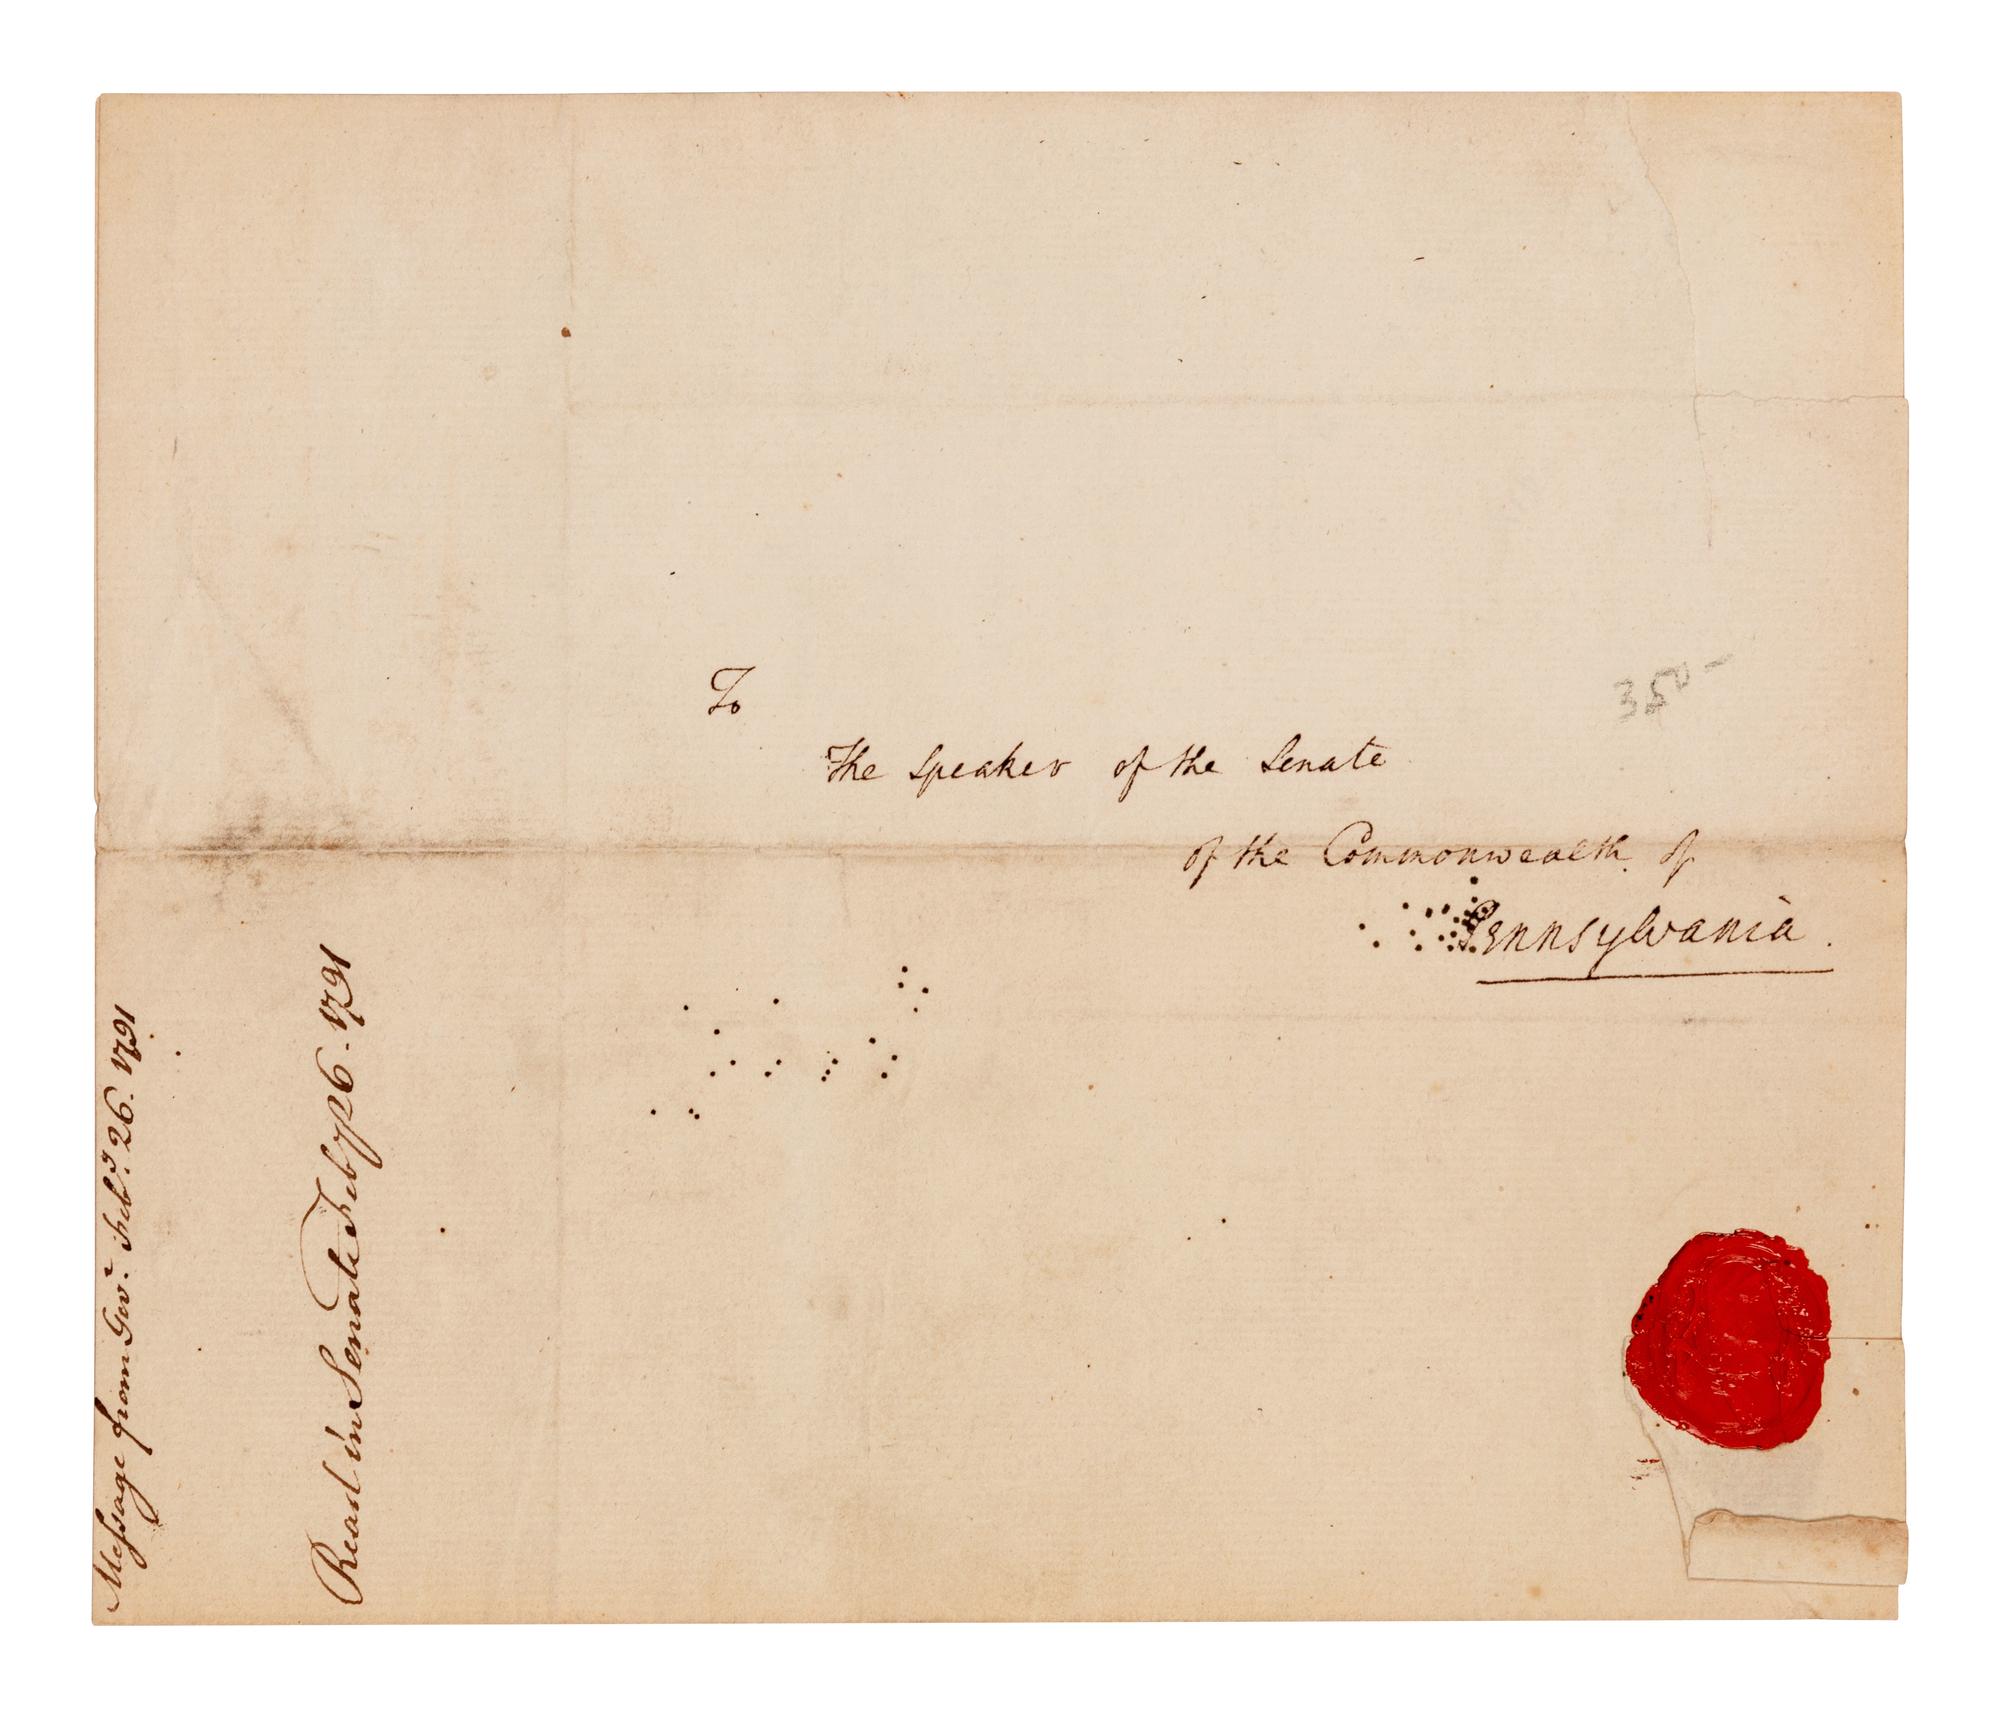 To
The Speaker of the Senate
of the Commonwealth of
Pennsylvania.
350-
Message from Govr. Feby. 26. 1791
Read in Senate Feby 26. 1791